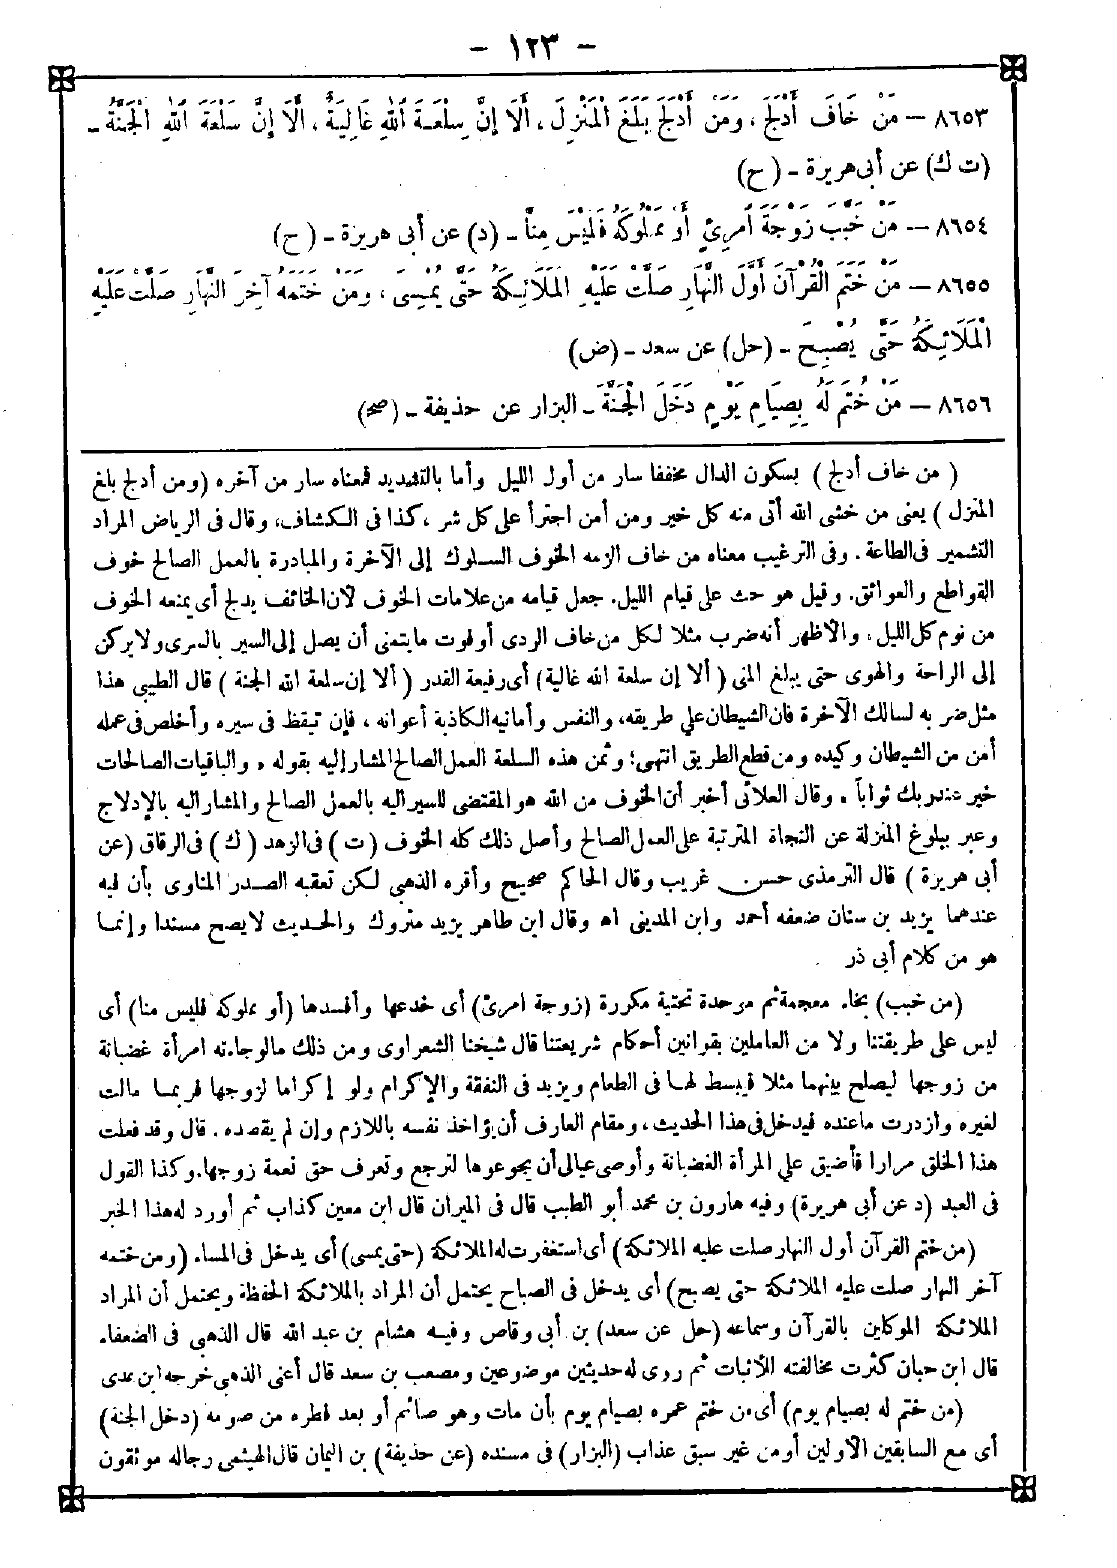 - ١٢٣ -
٨٦٥٣ - مَنْ خَافَ أَدْلَجَ ، وَمَنْ أَدْلَجَ بَلَغَ الْمَنْزِلَ ، أَلَا إِنَّ سِلْعَةَ اللهِ غَالِيَةٌ ، أَلَا إِنَّ سَلْعَةَ اللهِ الْجَنَّةُ -
(ت ك) عن أبى هريرة - (ح)
٨٦٥٤ - مَنْ خَبَّبَ زَوْجَةَ امرِئٍ أَوْ مَمْلُوكَهُ فَلَيْسَ مِنَّا - (د) عن أبى هريرة - (ح)
٨٦٥٥ - مَنْ خَتَمَ الْقُرْآنَ أَوَّلَ النَّهَارِ صَلَّتْ عَلَيْهِ الْمَلَائِكَةُ حَتَّى يُمْسِىَ ، وَمَنْ خَتَمَهُ آخِرَ النَّهَارِ صَلَّتْ عَلَيْهِ
الْمَلَائِكَةُ حَتَّى يُصْبِحَ - (حل) عن سعد - (ض)
٨٦٥٦ - مَنْ خُتِمَ لَهُ بِصِيَامِ يَوْمٍ دَخَلَ الْجَنَّةَ - البزار عن حذيفة - (صح)
( من خاف أدلج ) بسكون الدال مخففا سار من أول الليل وأما بالتشديد فمعناه سار من آخره (ومن أدلج بلغ
المنزل ) يعنى من خشى الله أتى منه كل خير ومن أمن اجترأ على كل شر ، كذا فى الكشاف، وقال فى الرياض المراد
التشمير فى الطاعة . وفى الترغيب معناه من خاف الزمه الخوف السلوك إلى الآخرة والمبادرة بالعمل الصالح خوف
القواطع والعوائق. وقيل هو حث على قيام الليل. جعل قيامه من علامات الخوف لأن الخائف يدلج أى يمنعه الخوف
من نوم كل الليل ، والأظهر أنه ضرب مثلا لكل من خاف الردى أو فوت ما يتمنى أن يصل إلى السير بالسرى ولا يركن
إلى الراحة والهوى حتى يبلغ المنى ( ألا إن سلعة الله غالية) أى رفيعة القدر ( ألا إن سلعة الله الجنة ) قال الطيبى هذا
مثل ضر به لسالك الآخرة فان الشيطان على طريقه، والنفس وأمانيه الكاذبة أعوانه ، فإن تيقظ فى سيره وأخلص فى عمله
أمن من الشيطان وكيده ومن قطع الطريق انتهى؛ وثمن هذه السلعة العمل الصالح المشار إليه بقوله ، والباقيات الصالحات
خير عند ربك ثواباً ، وقال العلائى أخبر أن الخوف من الله هو المقتضى للسير اليه بالعمل الصالح والمشار اليه بالإدلاج
وعبر ببلوغ المنزلة عن النجاة المترتبة على العمل الصالح وأصل ذلك كله الخوف ( ت ) فى الزهد ( ك ) فى الرقاق (عن
أبى هريرة ) قال الترمذى حسن غريب وقال الحاكم صحيح وأقره الذهبى لكن تعقبه الصدر المناوى بأن فيه
عندهما يزيد بن سنان ضعفه أحمد وابن المدينى اه وقال ابن طاهر يزيد متروك والحديث لا يصح مسندا وإنما
هو من كلام أبى ذر
(من خبب) بخاء معجمة ثم موحدة تحتية مكررة (زوجة امرئ) أى خدعها وأفسدها (أو مملوكه فليس منا) أى
ليس على طريقتنا ولا من العاملين بقوانين أحكام شريعتنا قال شيخنا الشعراوى ومن ذلك مالو جاءته امرأة غضبانة
من زوجها ليصلح بينهما مثلا فيبسط لها فى الطعام ويزيد فى النفقة والإكرام ولو إكراما لزوجها فربما مالت
لغيره وازدرت ماعنده فيدخل فى هذا الحديث ، ومقام العارف أن يؤاخذ نفسه باللازم وإن لم يقصده . قال وقد فعلت
هذا الخلق مرارا فأضيق على المرأة الغضبانة وأوصى عيالى أن يجوعوها لترجع وتعرف حق نعمة زوجها. وكذا القول
فى العبد (د عن أبى هريرة) وفيه هارون بن محمد أبو الطيب قال فى الميزان قال ابن معين كذاب ثم أورد له هذا الخبر
(من ختم القرآن أول النهار صلت عليه الملائكة) أى استغفرت له الملائكة (حتى يمسى) أى يدخل فى المساء (ومن ختمه
آخر النهار صلت عليه الملائكة حتى يصبح) أى يدخل فى الصباح يحتمل أن المراد بالملائكة الحفظة ويحتمل أن المراد
الملائكة الموكلين بالقرآن وسماعه (حل عن سعد) بن أبى وقاص وفيه هشام بن عبد الله قال الذهبى فى الضعفاء
قال ابن حبان كثرت مخالفته للأثبات ثم روى له حديثين موضوعين ومصعب بن سعد قال أعنى الذهبى خرجه ابن عدى
(من ختم له بصيام يوم) أى من ختم عمره بصيام يوم بأن مات وهو صائم أو بعد فطره من صومه (دخل الجنة)
أى مع السابقين الأولين أو من غير سبق عذاب (البزار) فى مسنده (عن حذيفة) بن اليمان قال الهيثمى رجاله موثقون